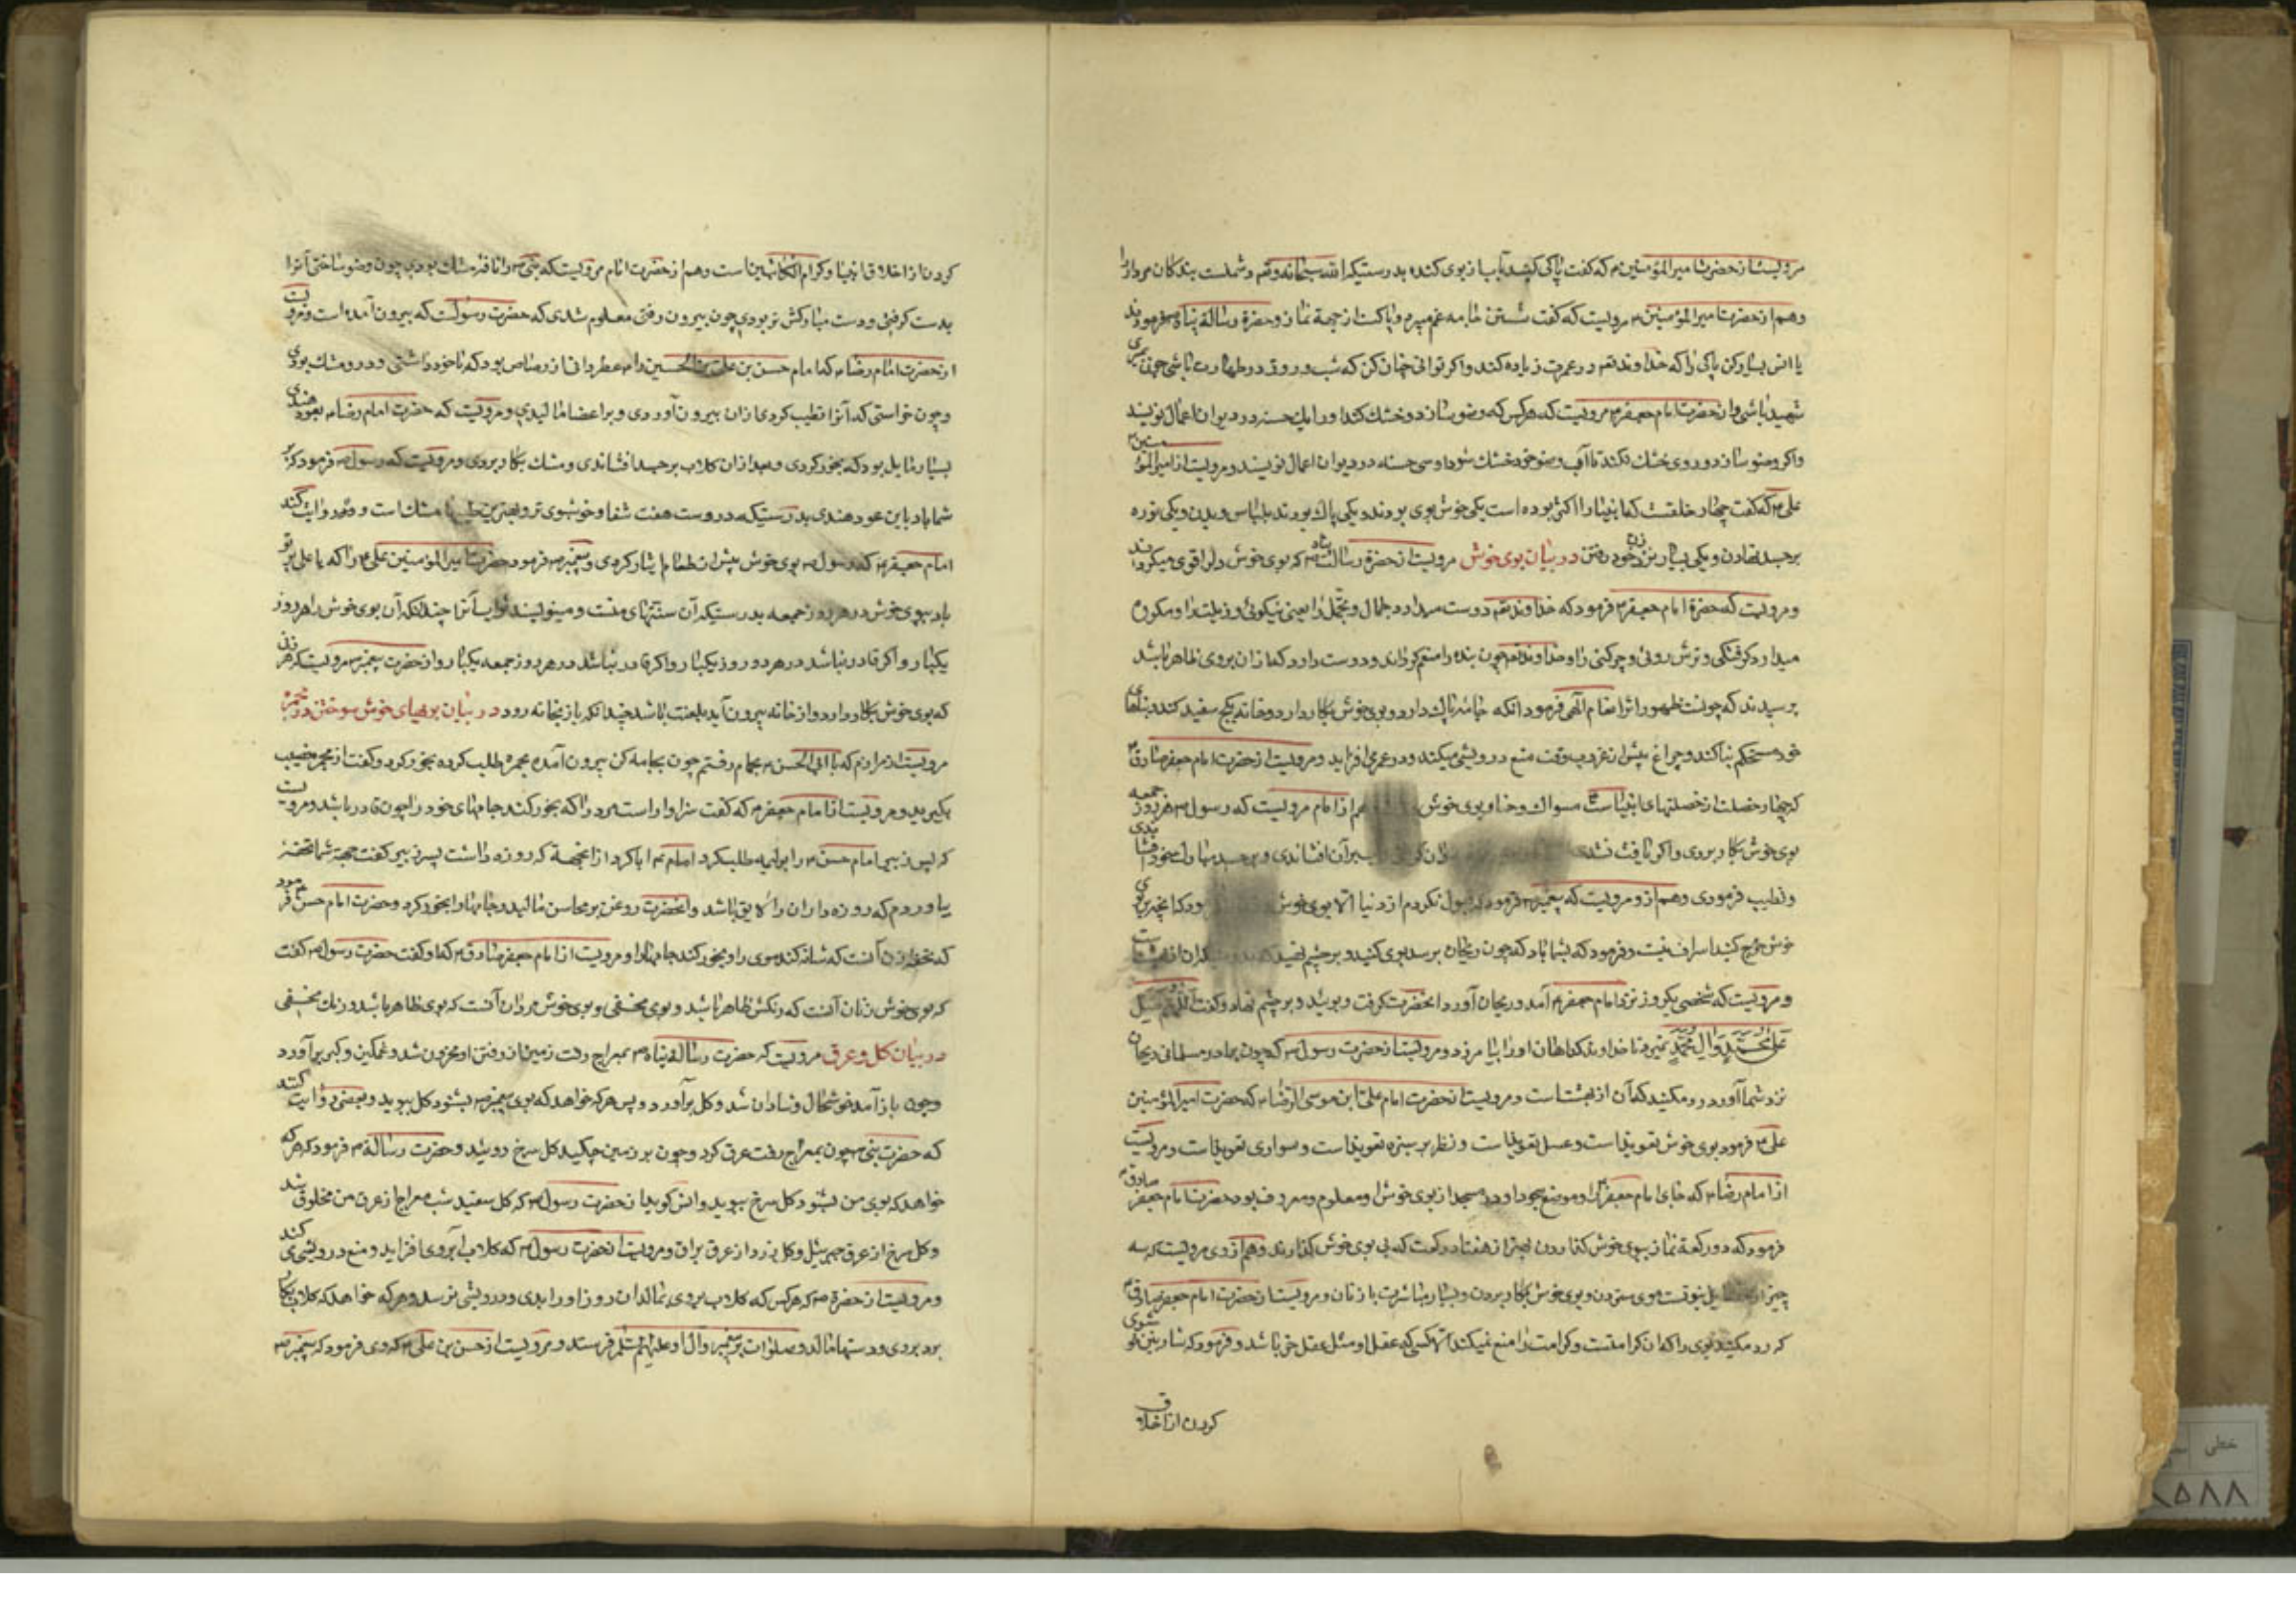 مرویست از حضرت امیر المؤمنین ۴ که گفت پاکی کنید بآب از بوی کننده بدرستیکه الله سبحانه و تعم دشمنست بندکان مردار را
وهم از حضرت امیر المؤمنین ۴ مرویست که گفت شستن جامه غم میبرد و پاکست از جهة نماز و حضرة رسالة پناه ۴ فرمودند
یا انس بسیار کن پاکی را که خداوند تعم در عمرت زیاده کند و اکر توانی چنان کن که شب و روز در طهارت باشی چون میری
شهید باشی و از حضرت امام جعفر ۴ مرویست که هرکس که وضو سازد و خشک کند او را یک حسنه در دیوان اعمال نویسند
و اکر وضو سازد و روی خشک نکند تا آب وضو خود خشک شود او سی حسنه در دیوان اعمال نویسند و مرویست از امیر المؤمنین
علی ۴ که گفت چهار خلقت که انبیا را اکثر بوده است یکی خوش بوی بودند و یکی پاک بودند بلباس و بدن و یکی نوره
بر جسد نهادن و یکی بسیار بزن خود رفتن در بیان بوی خوش مرویست از حضرة رسالت پناه ۴ که بوی خوش دل را قوی میکرداند
و مرویست که حضرة امام جعفر ۴ فرمود که خداوند تعم دوست میدارد جمال و تجمل را یعنی نیکوئی و زینت را و مکروه
میدارد کرفتکی و ترش روئی و چرکنی را و خداوند تعم چون بنده را منعم کرداند دوست دارد که از آن بروی ظاهر باشد
پرسیدند که چونست ظهور اثر انعام آلهی فرمود انکه جامه پاک دارد و بوی خوش بکار دارد و خانه بکج سفید کند و بناهای
خود مستحکم بنا کند و چراغ پیش از غروب وقت منع درویشی میکند و در عمر می افزاید و مرویست از حضرت امام جعفر صادق ۴
که چهار خصلت از خصلتهای انبیاست مسواک و حنا و بوی خوش هم از امام مرویست که رسول ۴ هر روز جمعه
بوی خوش بکار بردی و اکر نیافت نشدی بر آن افشاندی و بر جسد مبارک خود افشاندی
و تطیب فرمودی وهم از و مرویست که پیغمبر ۴ فرمود که قبول نکردم از دنیا الا بوی خوش
خوش خرج کنید اسراف نیست و فرمود که بشما باد که چون ریحان برسد بوی کنید و بر چشم نهید
و مرویست که شخصی یکروز نزد امام جعفر ۴ آمد و ریحان آورد انحضرت کرفت و بوئید و بر چشم نهاد و گفت اللهم صل
علی محمد و آل محمد نمیرد تا خداوند کناهان او را بیامرزد و مرویست از حضرت رسول ۴ که چون برادر مسلمانی ریحان
نزد شما آورد رد مکنید که آن از بهشتست و مرویست از حضرت امام علی ابن موسی الرضا ۴ که حضرت امیر المؤمنین
علی ۴ فرمود بوی خوش تعویذ است و عسل تعویذ است و نظر بر سبزه تعویذ است و سواری تعویذ است و مرویست
از امام رضا ۴ که جای امام جعفر ۴ و موضع سجود او در مسجد از بوی خوش او معلوم و معروف بود حضرت امام جعفر صادق ۴
فرمود که دو رکعة نماز ببوی خوش کذاردن بهتر از هفتاد رکعت که بی بوی خوش کذارند وهم از وی مرویست که سه
چیز از نبوتست موی ستردن و بوی خوش بکار بردن و بسیار مباشرت با زنان و مرویست از حضرت امام جعفر صادق ۴
که رد مکنید بوی را که ان کرامتست و کرامت را منع نمیکند الا کسی که عقل او مثل عقل خر باشد و فرمود که شارب نیکو شوی
کردن از اخلاق
کردن از اخلاق انبیا و کرام الکاتبین است وهم از حضرت امام مرویست که نبی ۴ را نافه مشک بودی چون وضو ساختی آنرا
بدست کرفتی و دست مبارکش تر بودی چون بیرون رفتی معلوم شدی که حضرت رسولست که بیرون آمده است و مرویست
از حضرت امام رضا ۴ که امام حسن بن علی بن الحسین را ۴ عطردانی از رصاص بود که با خود داشتی و در و مشک بودی
و چون خواستی که آنرا تطیب کردی ازان بیرون آوردی و بر اعضا مالیدی و مرویست که حضرت امام رضا ۴ بعود هندی
بسیار مایل بود که بخور کردی و بعد ازان کلاب بر جسد افشاندی و مشک بکار بردی و مرویست که رسول ۴ فرمود که بر
شما باد باین عود هندی بدرستیکه در وست هفت شفا و خوشبوی تر و بهترین طیبها مشک است و روایت کند
امام جعفر ۴ که رسول ۴ بوی خوش بیش از طعام ایثار کردی و پیغمبر ۴ فرمود حضرت امیر المؤمنین علی ۴ را که یا علی بر تو
باد ببوی خوش در هر روز جمعه بدرستیکه آن سنتهای منست و مینویسند ثواب آنرا چندانکه آن بوی خوش را هر روز
یکبار و اکر قادر نباشد در هر دو روز یکبار و اکر قادر نباشد در هر روز جمعه یکبار و از حضرت پیغمبر ۴ مرویست که هر زنی
که بوی خوش بکار دارد و از خانه بیرون آید بلعنت باشد چندانکه باز بخانه رود در بیان بوهای خوش سوختن در مجمره
مرویست از مرازم که با ابی الحسن ۴ بحمام رفتم چون بجامه کن بیرون آمد مجمره طلب کرده بخور کرد و گفت از مجمر نصیب
بکیرید و مرویست از امام جعفر ۴ که گفت سزاوار است مرد را که بخور کند جامهای خود را چون قادر باشد و مرویست
که پسر زبیر امام حسن ۴ را بولیمه طلب کرد امام ۴ ابا کرد از انجهة که روزه داشت پسر زبیر گفت جهة شما تحفه
بیاوردم که روزه داران را لایق باشد و انحضرت روغن بر محاسن مالید و جامها را بخور کرد و حضرت امام حسن فرمود
که تحفه زن آنست که شانه کند موی را و بخور کند جامها را و مرویست از امام جعفر صادق ۴ که او گفت حضرت رسول ۴ گفت
که بوی خوش زنان آنست که رنکش ظاهر باشد و بوی مخفی و بوی خوش مردان آنست که بوی ظاهر باشد و رنک مخفی
در بیان کل و عرق مرویست که حضرت رسالة پناه ۴ بمعراج رفت زمین از رفتن او محزون شد و غمکین و کبر بر آورد
و چون باز آمد خوشحال و شادان شد و کل بر آورد و پس هرکه خواهد که بوی پیغمبر ۴ بشنود کل ببوید و بعضی روایت کنند
که حضرت نبی ۴ چون بمعراج رفت عرق کرد و چون بر زمین چکید کل سرخ روئید و حضرت رسالة ۴ فرمود که هرکه
خواهد که بوی من بشنود کل سرخ ببوید و انس کوید از حضرت رسول ۴ که کل سفید شب معراج از عرق من مخلوق شد
و کل سرخ از عرق جبرئیل و کل زرد از عرق براق و مرویست از حضرت رسول ۴ که کلاب آبروی افزاید و منع درویشی کند
و مرویست از حضرة ۴ که هرکس که کلاب بروی بمالد ان روز او را بدی و درویشی نرسد و هر که خواهد که کلاب بکار
برد بروی و دستها مالد و صلوات بر پیغمبر و آل او علیهم السلام فرستد و مرویست از حسن بن علی ۴ که وی فرمود که پیغمبر ۴